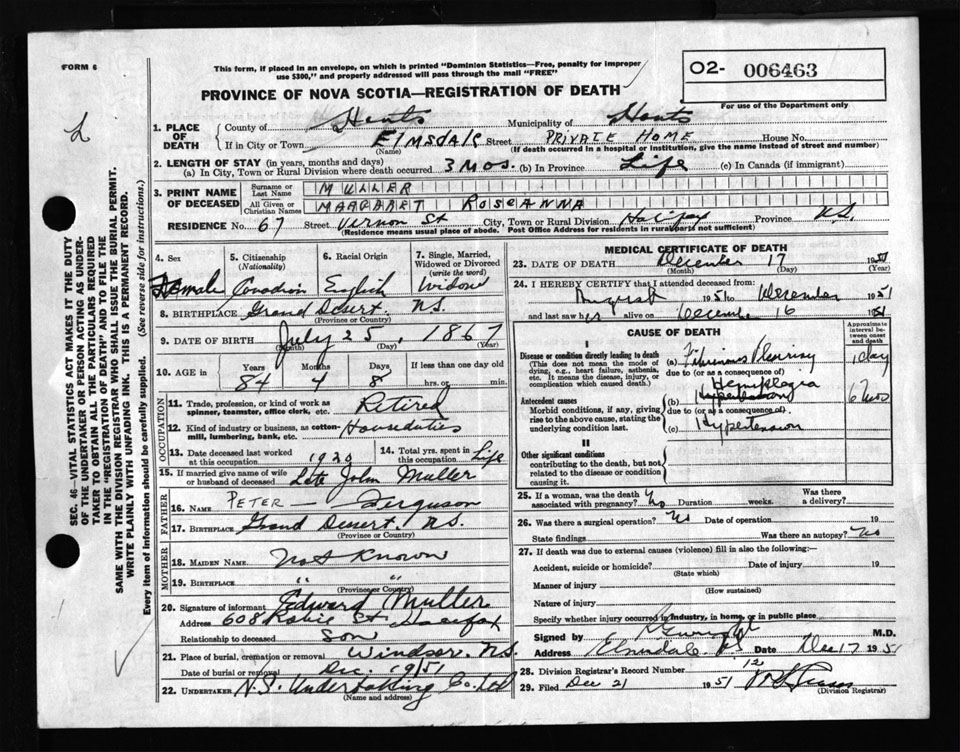 FORM 6
This form, if placed in an envelope, on which is printed "Dominion Statistics—Free, penalty for improper
use $300," and properly addressed will pass through the mail "FREE"
O2- 006463
For use of the Department only
PROVINCE OF NOVA SCOTIA—REGISTRATION OF DEATH
L
SEC. 46—VITAL STATISTICS ACT MAKES IT THE DUTY
OF THE UNDERTAKER OR PERSON ACTING AS UNDER-
TAKER TO OBTAIN ALL THE PARTICULARS REQUIRED
IN THE "REGISTRATION OF DEATH" AND TO FILE THE
SAME WITH THE DIVISION REGISTRAR WHO SHALL ISSUE THE BURIAL PERMIT.
WRITE PLAINLY WITH UNFADING INK. THIS IS A PERMANENT RECORD.
Every item of information should be carefully supplied. (See reverse side for instructions.)
1. PLACE OF DEATH County of Hants Municipality of Hants
If in City or Town Elmsdale Street PRIVATE HOME House No.
(Name) (If death occurred in a hospital or institution, give the name instead of street and number)
2. LENGTH OF STAY (in years, months and days)
(a) In City, Town or Rural Division where death occurred 3 Mos. (b) In Province Life (c) In Canada (if immigrant)
3. PRINT NAME OF DECEASED Surname or Last Name MULLER
All Given or Christian Names MARGARET ROSEANNA
RESIDENCE No. 67 Street Vernon St City, Town or Rural Division Halifax Province N.S.
(Residence means usual place of abode. Post Office Address for residents in rural parts not sufficient)
4. Sex 5. Citizenship (Nationality) 6. Racial Origin 7. Single, Married, Widowed or Divorced (write the word)
Female Canadian English Widow
8. BIRTHPLACE Grand Desert N.S.
(Province or Country)
9. DATE OF BIRTH July 25, 1867
(Month) (Day) (Year)
10. AGE in Years Months Days If less than one day
84 4 8 hrs. or min.
OCCUPATION
11. Trade, profession, or kind of work as spinner, teamster, office clerk, etc. Retired
12. Kind of industry or business, as cotton-mill, lumbering, bank, etc. Houseduties
13. Date deceased last worked at this occupation 1929 14. Total yrs. spent in this occupation Life
15. If married give name of wife or husband of deceased Late John Muller
FATHER
16. Name PETER — Ferguson
17. BIRTHPLACE Grand Desert. N.S.
(Province or Country)
MOTHER
18. MAIDEN NAME Not Known
19. BIRTHPLACE " "
(Province or Country)
20. Signature of informant Edward Muller
Address 608 Robie St Halifax
Relationship to deceased Son
21. Place of burial, cremation or removal Windsor. N.S.
Date of burial or removal Dec. 19/51
22. UNDERTAKER N.S. Undertaking Co. Ltd
(Name and address)
MEDICAL CERTIFICATE OF DEATH
23. DATE OF DEATH December 17 1951
(Month) (Day) (Year)
24. I HEREBY CERTIFY that I attended deceased from:
August 1951 to December 1951
and last saw her alive on December 16 1951
CAUSE OF DEATH
Approximate interval between onset and death
I
Disease or condition directly leading to death
(This does not mean the mode of dying, e.g., heart failure, asthenia, etc. It means the disease, injury, or complication which caused death.)
(a) Fibrinous Pleurisy 1 day
due to (or as a consequence of)
Antecedent causes
Morbid conditions, if any, giving rise to the above cause, stating the underlying condition last.
Hemiplegia
(b) 6 mos
due to (or as a consequence of)
(c) Hypertension
II
Other significant conditions
contributing to the death, but not related to the disease or condition causing it.
25. If a woman, was the death associated with pregnancy? No Duration weeks. Was there a delivery?
26. Was there a surgical operation? No Date of operation 19
State findings Was there an autopsy? No
27. If death was due to external causes (violence) fill in also the following:—
Accident, suicide or homicide? Date of injury 19
(State which)
Manner of injury
(How sustained)
Nature of injury
Specify whether injury occurred in industry, in home, or in public place
Signed by M.D.
Address Elmsdale NS Date Dec 17 1951
28. Division Registrar's Record Number 12
29. Filed Dec 21 1951
(Division Registrar)